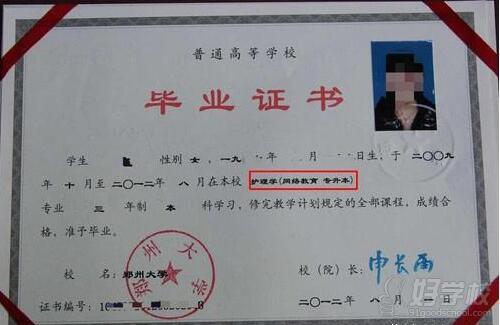 普通高等学校
毕业证书
学生 性别 女，一九 年 月 日生，于二〇〇九
年十月至二〇一二年八月在本校 护理学(网络教育 专升本)
专业 三年制 本科学习，修完教学计划规定的全部课程，成绩合
格，准予毕业。
校 名：郑州大学
校（院）长：申长雨
郑州大学
证书编号：
二〇一二年八月
好学校